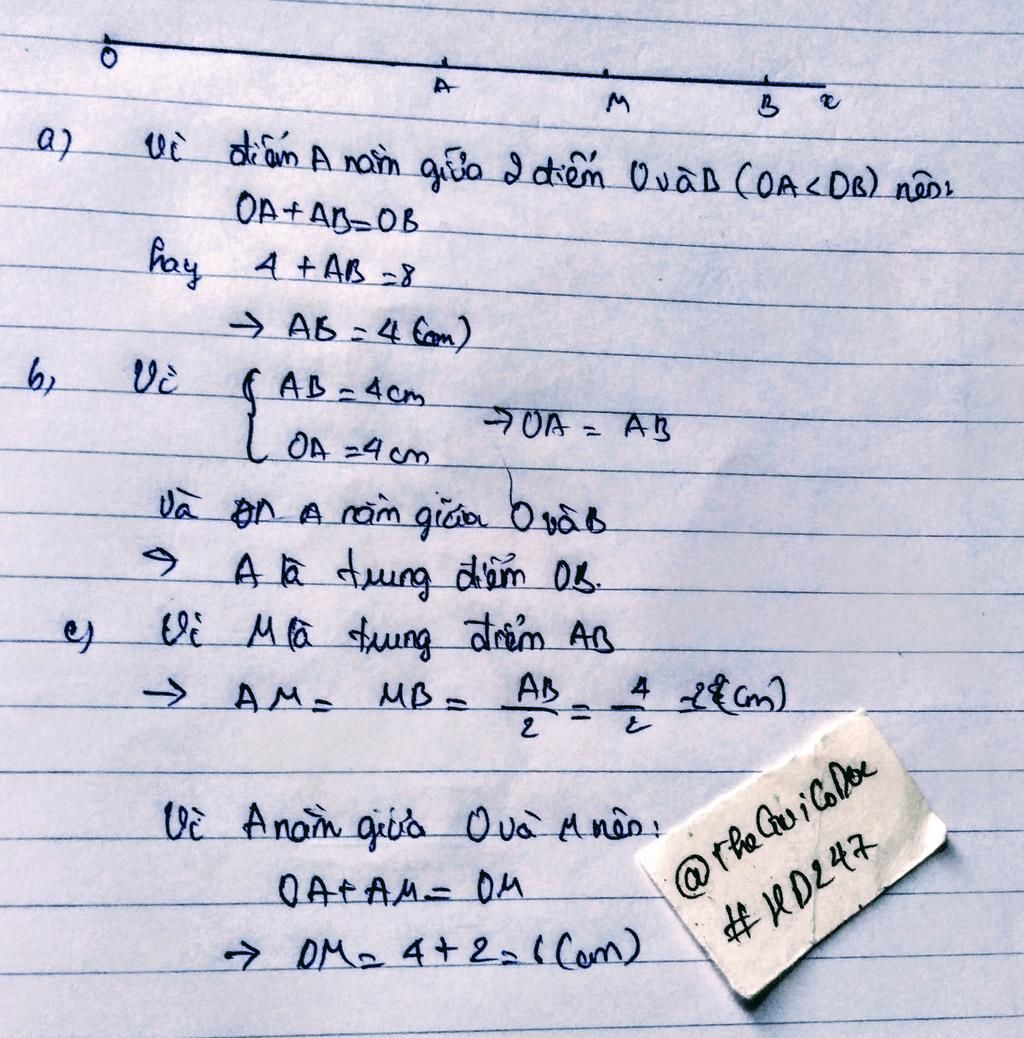 O A M B x
a) Vì điểm A nằm giữa 2 điểm O và B (OA < OB) nên:
OA + AB = OB
hay 4 + AB = 8
→ AB = 4 (cm)
b, Vì { AB = 4 cm
OA = 4 cm → OA = AB
và A nằm giữa O và B
→ A là trung điểm OB.
c) Vì M là trung điểm AB
→ AM = MB = AB/2 = 4/2 = 2 (cm)
Vì A nằm giữa O và M nên:
OA + AM = OM
→ OM = 4 + 2 = 6 (cm)
@TheGuiCoDoc
#HD247